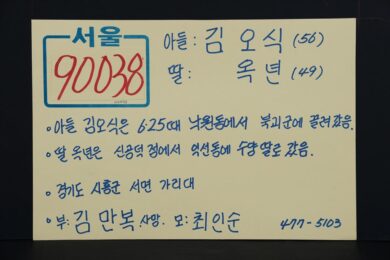 서울
90038
아들: 김오식 (56)
딸: 옥년 (49)
• 아들 김오식은 6·25때 낙원동에서 북괴군에 끌려갔음.
• 딸 옥년은 신공덕정에서 익선동에 수양딸로 갔음.
• 경기도 시흥군 서면 가리대
• 부: 김만복. 사망. 모: 최인순 477-5103